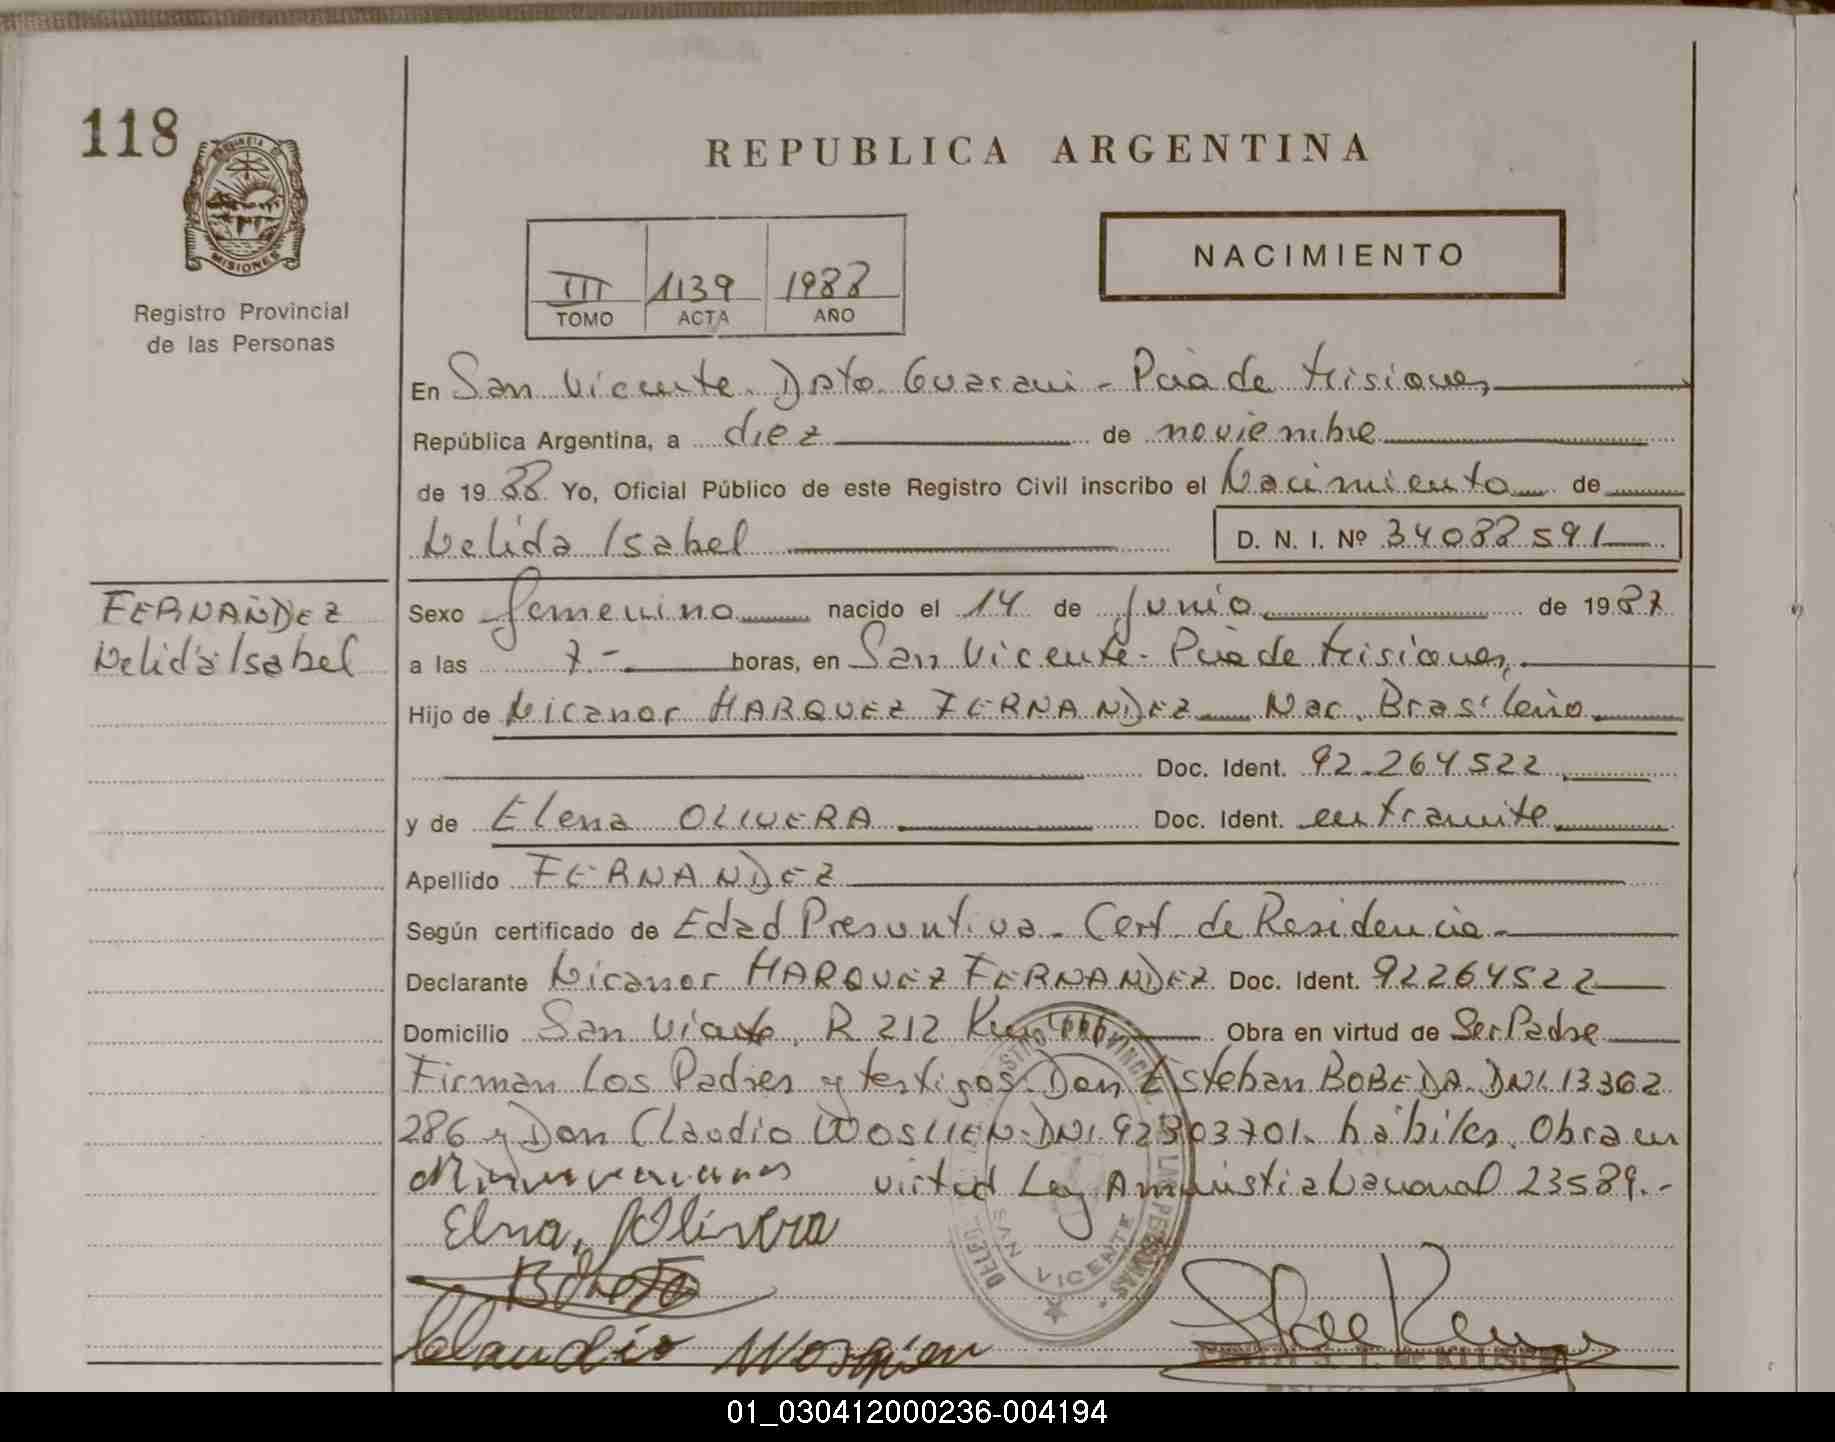 118
REPUBLICA ARGENTINA
PROVINCIA DE
MISIONES
Registro Provincial
de las Personas
NACIMIENTO
III 1139 1988
TOMO ACTA AÑO
En San Vicente. Dpto. Guarani - Pcia de Misiones,
República Argentina, a diez de noviembre
de 1988 Yo, Oficial Público de este Registro Civil inscribo el Nacimiento de
Nelida Isabel D. N. I. Nº 34088591
FERNANDEZ
Nelida Isabel
Sexo femenino nacido el 14 de Junio de 1987
a las 7.- horas, en San Vicente - Pcia de Misiones,
Hijo de Nicanor MARQUEZ FERNANDEZ Nac. Brasileño
Doc. Ident. 92.264522
y de Elena OLIVERA Doc. Ident. en tramite
Apellido FERNANDEZ
Según certificado de Edad Presuntiva - Cert. de Residencia -
Declarante Nicanor MARQUEZ FERNANDEZ Doc. Ident. 92264522
Domicilio San Vicente, R 212 Km Obra en virtud de Ser Padre
Firman Los Padres y testigos Don Esteban BOBEDA. DNI. 13362
286 y Don Claudio WOSNIEN - DNI. 92303701. hábiles. Obra en
virtud Ley Amnistia Nacional 23589.-
Elna, Olivera
Claudio Wosnien
SAN VICENTE
01_030412000236-004194